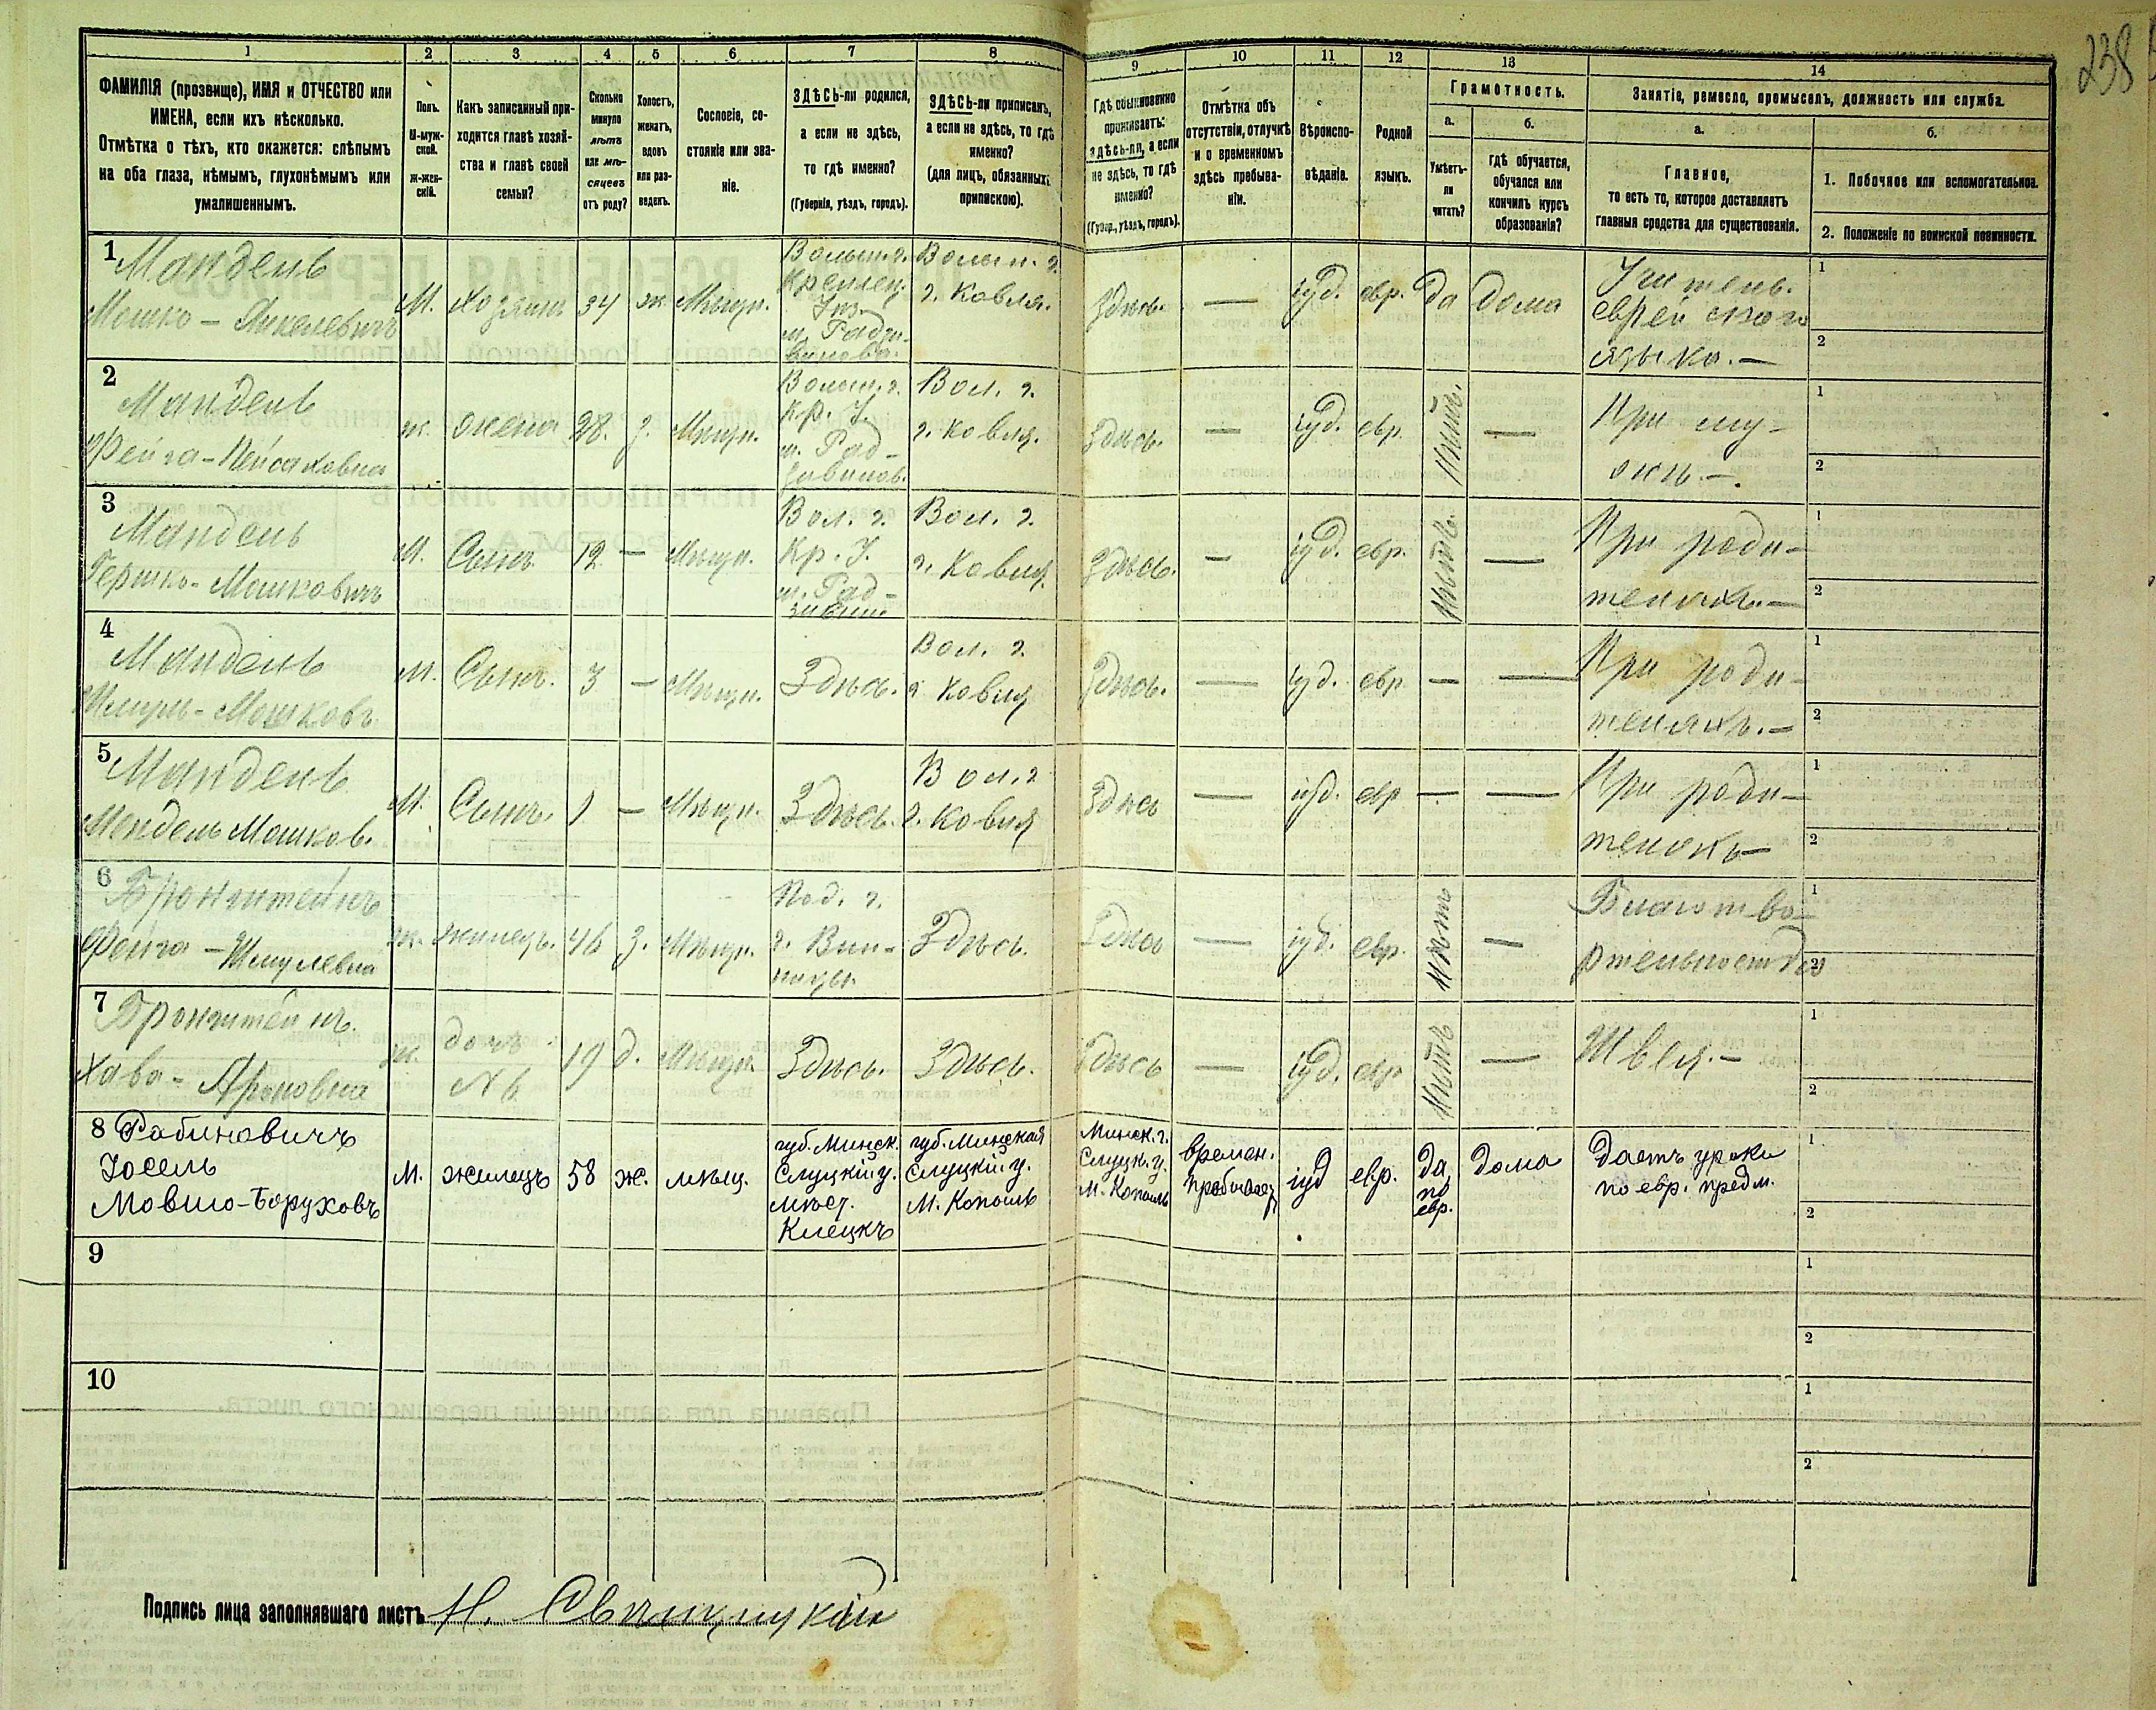 238
1 2 3 4 5 6 7 8 9 10 11 12 13 14
ФАМИЛІЯ (прозвище), ИМЯ и ОТЧЕСТВО или
ИМЕНА, если ихъ нѣсколько.
Отмѣтка о тѣхъ, кто окажется: слѣпымъ
на оба глаза, нѣмымъ, глухонѣмымъ или
умалишеннымъ.
Полъ.
М-муж-
ской.
ж-жен-
скій.
Какъ записанный при-
ходится главѣ хозяй-
ства и главѣ своей
семьи?
Сколько
минуло
лѣтъ
или мѣ-
сяцевъ
отъ роду?
Холостъ,
женатъ,
вдовъ
или раз-
веденъ.
Сословіе, со-
стояніе или зва-
ніе.
ЗДѢСЬ-ли родился,
а если не здѣсь,
то гдѣ именно?
(Губернія, уѣздъ, городъ).
ЗДѢСЬ-ли приписанъ,
а если не здѣсь, то гдѣ
именно?
(для лицъ, обязанныхъ
припискою).
Гдѣ обыкновенно
проживаетъ:
здѣсь-ли, а если
не здѣсь, то гдѣ
именно?
(Губер., уѣздъ, городъ).
Отмѣтка объ
отсутствіи, отлучкѣ
и о временномъ
здѣсь пребыва-
ніи.
Вѣроиспо-
вѣданіе.
Родной
языкъ.
Грамотность.
а.
Умѣетъ-
ли
читать?
б.
гдѣ обучается,
обучался или
кончилъ курсъ
образованія?
Занятіе, ремесло, промыселъ, должность или служба.
а.
Главное,
то есть то, которое доставляетъ
главныя средства для существованія.
б.
1. Побочное или вспомогательное.
2. Положеніе по воинской повинности.
1 Мандель
Мошко - Янкелевичъ
М.
Хозяинъ
34
ж
Мѣщн.
Волын. г.
Кремен.
Уѣз.
м. Радзи-
вилова.
Волын. г.
г. Ковля.
Здѣсь.
—
іуд.
евр.
да
дома
Учитель
еврейскаго
языка. —
1
2
2 Мандель
Фейга - Пейсаховна
ж.
жена
28.
з.
Мѣщн.
Волын. г.
Кр. У.
м. Рад-
зивилов.
Вол. г.
г. Ковля.
Здѣсь.
—
іуд.
евр.
Нѣтъ.
—
При му-
жѣ. —.
1
2
3 Мандель
Гершко - Мошковичъ
М.
Сынъ.
12
—
Мѣщн.
Вол. г.
Кр. У.
м. Рад-
зивил
Вол. г.
г. Ковля.
Здѣсь.
—
іуд.
евр.
Нѣтъ.
—
При роди-
теляхъ. —
1
2
4 Мандель
Шмуль - Мошковъ.
М.
Сынъ.
3
—
Мѣщн.
Здѣсь.
Вол. г.
г. Ковля
Здѣсь.
—
іуд.
евр
—
—
При роди-
теляхъ. —
1
2
5 Мандель
Мендель Мошков.
М.
Сынъ.
1
—
Мѣщн.
Здѣсь.
Вол. г
г. Ковля
Здѣсь
—
іуд.
евр
—
—
При роди-
теляхъ —
1
2
6 Бронштейнъ
Фейга - Шмулевна
ж.
жилецъ.
46
з.
Мѣщн.
Под. г.
г. Вин-
ницы
Здѣсь.
Здѣсь
—
іуд.
евр.
Нѣтъ
—
Благотво-
рительностью
1
2
7 Бронштейнъ.
Хава - Ароновна
ж.
дочь
№ 6
19
д.
Мѣщн.
Здѣсь.
Здѣсь.
Здѣсь
—
іуд.
евр
Нѣтъ
—
Швея. —
1
2
8 Рабиновичъ
Іосель
Мовшо-Боруховъ
М.
жилецъ
58
ж.
мѣщ.
губ. Минск.
Слуцкій у.
мѣст.
Клецкъ
губ. Минская
Слуцкій у.
М. Копыль
Минск. г.
Слуцк. у.
М. Копыль
времен.
пребываетъ
іуд
евр.
да
по
евр.
дома
Даетъ уроки
по евр. предм.
1
2
9
1
2
10
1
2
Подпись лица заполнявшаго листъ Н.